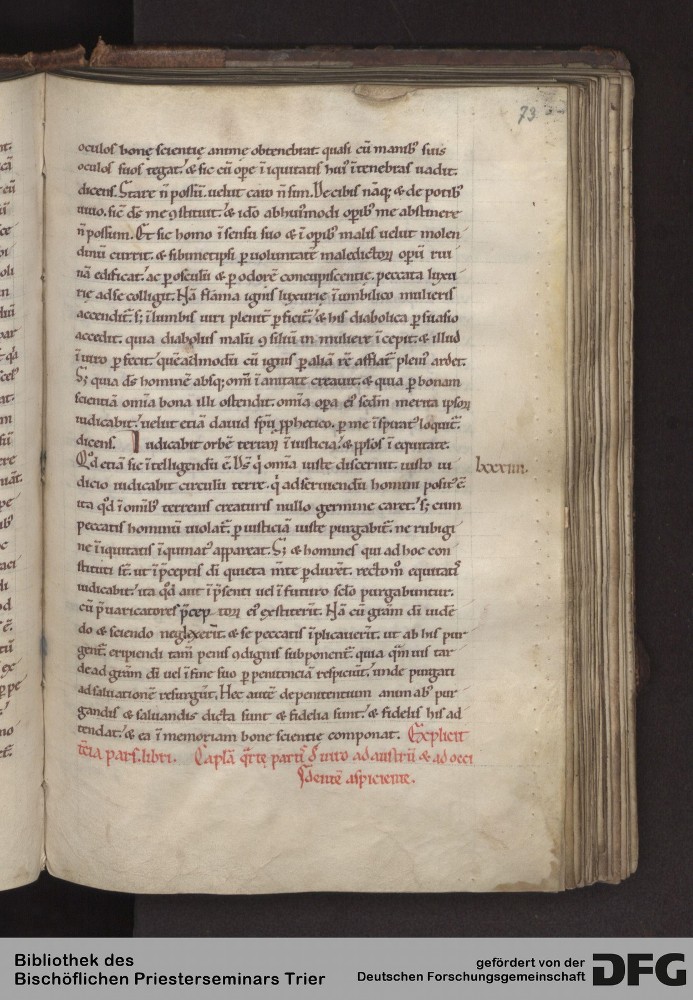 73
oculos bonę scientię animę obtenebrat. quasi cū manib' suis
oculos suos tegat. & sic cū ope ī iquitatis hui' ī tenebras uadit.
dicens. Stare n̄ possū. uelut caro n̄ sim. De cibis naq; & de potib'
uiuo. sic d̄s me ꝯstituit. & idō ab hui'modi opib' me abstinere
n̄ possum. Et sic homo ī sensu suo & ī opib' malis uelut molen
dinū currit. & sibimetipsi ꝑ uoluntatē maledictoꝝ opū rui
nā edificat. ac ꝑ osculū & ꝑ odorē concupiscentię. peccata luxu
rię ad se colligit. Nā flāma ignis luxurię ī umbilico mulieris
accendit̄. s; ī lumbis uiri plenit̄ ꝑficit̄. & his diabolica ꝑsuasio
accedit. quia diabolus malū ꝯsiliū in muliere īcepit. & illud
ī uiro ꝑfecit. quēadmodū cū ignis ꝑ aliā rē afflat̄ pleni' ardet.
S; quia d̄s hominē absq; om̄i īanitate creauit. & quia ꝑ bonam
scientiā omīa bona illi ostendit. omīa opa ei' scdm̄ merita ipsoꝝ
iudicabit. uelut etiā dauid spū ꝓphetico. ꝑ me īspirat' loquit̄.
dicens. Iudicabit orbē terraꝝ ī iusticia. & ppłos ī equitate.
Qd̄ etiā sic ītelligendū ē. D̄s q̇ omīa iuste discernit. iusto iu
lxxxiiii.
dicio iudicabit circulū terrę. q̇ ad seruiendū homini posit' ē.
ita qd̄ ī omīb' terrenis creaturis nullo germine caret. s; cum
peccatis hominū uiolat̄. ꝑ iusticiā iuste purgabit̄. ne rubigi
ne ī iquitatis īquinat' appareat. S; & homines qui ad hoc con
stituti st̄. ut ī p̄ceptis dī quieta m̄te ꝑdurēt. rectom̄ equitati'
iudicabit. ita qd̄ aut ī p̄senti uel ī futuro sclo purgabuntur.
cū p̄uaricatores p̄cep toꝝ ei' exstiterit̄. Nā cū grām dī uidē
do & sciendo neglexerīt. & se peccatis īplicauerīt. ut ab his pur
gent̄. eripiendi tam̄ penis ꝯdignis subponent̄. quia qm̄ uis tar
de ad grām dī uel ī fine suo ꝑ penitenciā respiciūt. unde purgati
ad saluationē resurgūt. Hec autē de penitentium animab' pur
gandis & saluandis dicta sunt & fidelia sunt. & fidelis his ad
tendat. & ea ī memoriam bonę scientię componat. Explicit
tēia pars. libri. Capła q̄rtę parti' d' uiro ad austrū & ad occi
dentē aspiciente.
Bibliothek des
Bischöflichen Priesterseminars Trier
gefördert von der
Deutschen Forschungsgemeinschaft
DFG